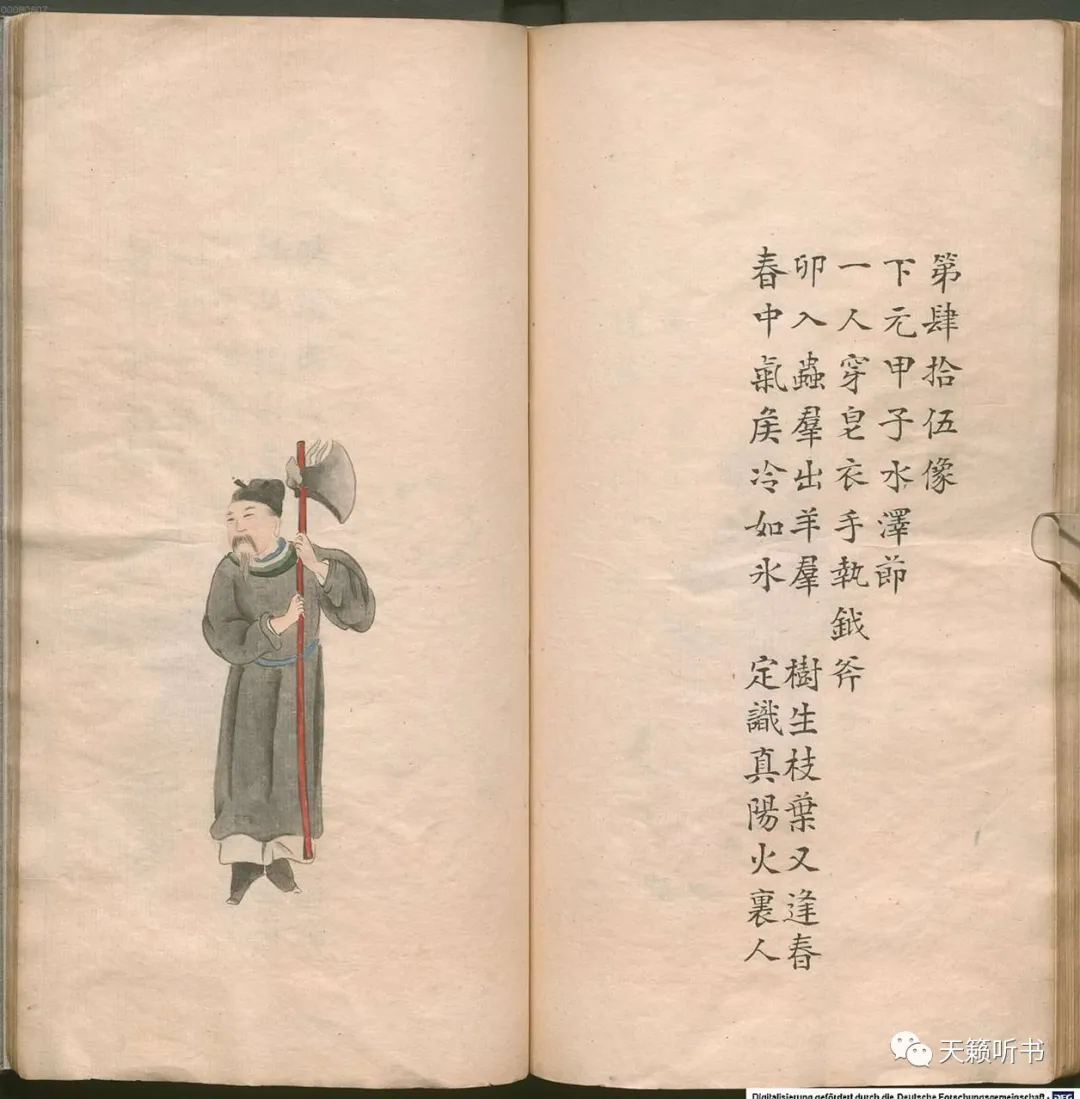 第肆拾伍像
下元甲子水澤節
一人穿皂衣手執鉞斧
卯入蟲羣出羊羣 樹生枝葉又逢春
春中氣候冷如氷 定識真陽火裏人
天籁听书
Digitalisierung gefördert durch die Deutsche Forschungsgemeinschaft - DFG